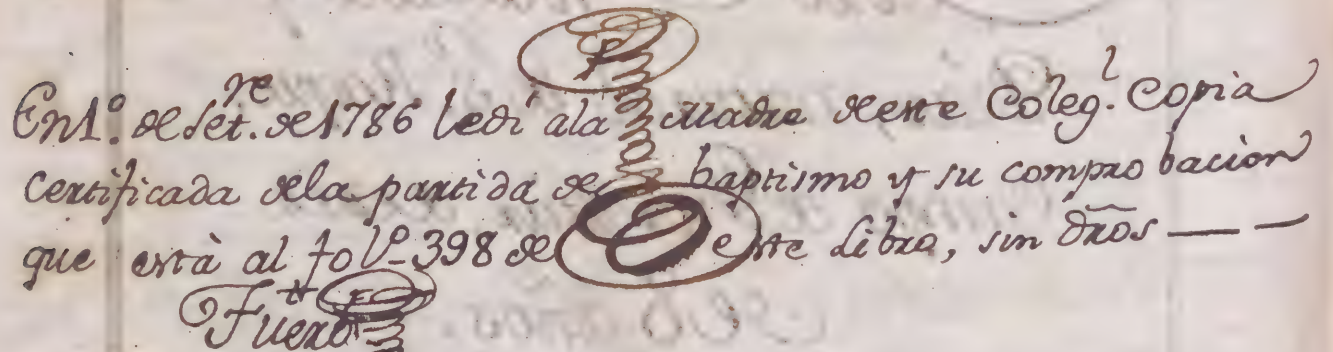 En 1º. de Set.re de 1786 le di ala Madre de este Coleg.l Copia
certificada dela partida de baptismo y su compro bacion
que està al fol.º 398 de este Libro, sin dr̃os — —